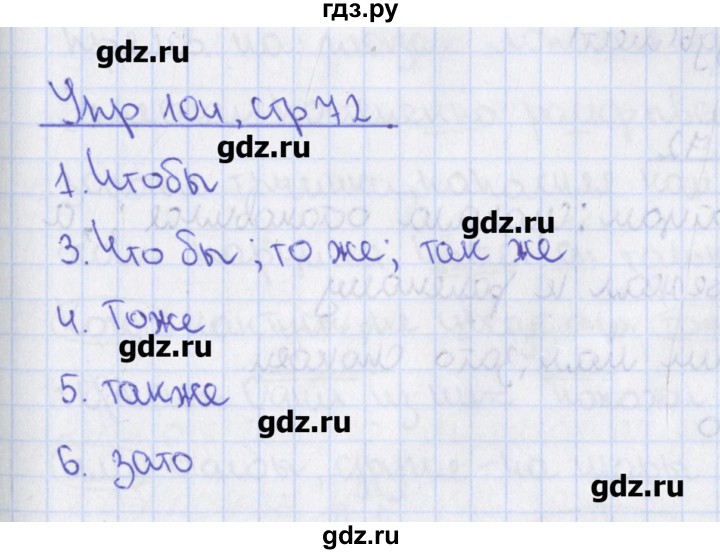 гдз.ру
gdz.ru
Упр 104, стр 72.
gdz.ru
1. Чтобы
gdz.ru
3. Что бы; то же; так же
4. Тоже
gdz.ru
5. также
gdz.ru
6. зато
gdz.ru
gdz.ru